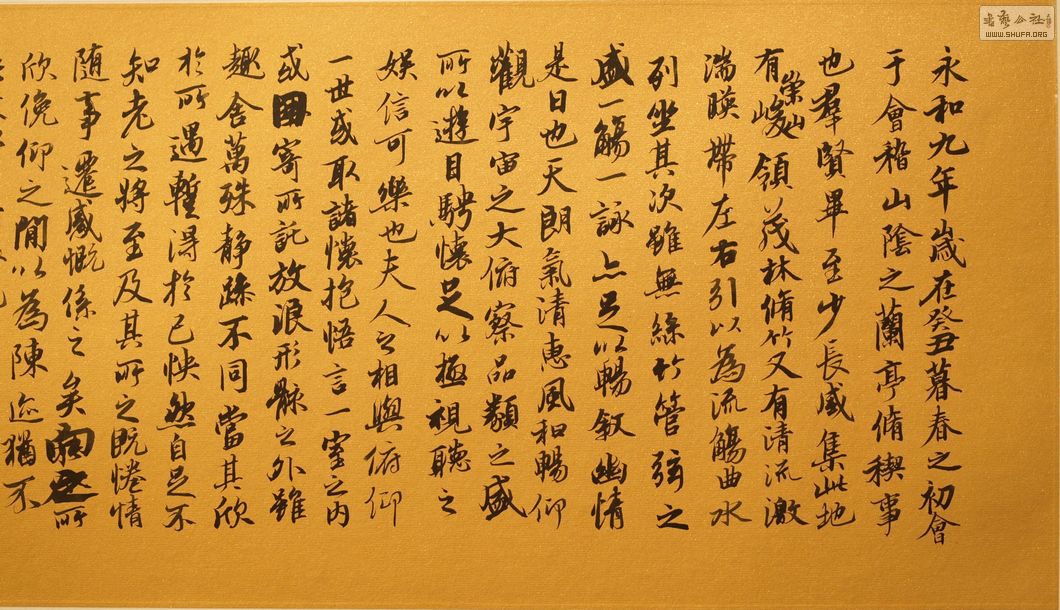 永和九年歲在癸丑暮春之初會
于會稽山陰之蘭亭脩稧事
也羣賢畢至少長咸集此地
有崇山峻領茂林脩竹又有清流激
湍暎帶左右引以為流觴曲水
列坐其次雖無絲竹管弦之
盛一觴一詠亦足以暢敘幽情
是日也天朗氣清惠風和暢仰
觀宇宙之大俯察品類之盛
所以遊目騁懷足以極視聽之
娛信可樂也夫人之相與俯仰
一世或取諸懷抱悟言一室之內
或因寄所託放浪形骸之外雖
趣舍萬殊靜躁不同當其欣
於所遇蹔得於己怏然自足不
知老之將至及其所之既惓情
隨事遷感慨係之矣向之所
欣俛仰之閒以為陳迹猶不
書藝公社
WWW.SHUFA.ORG